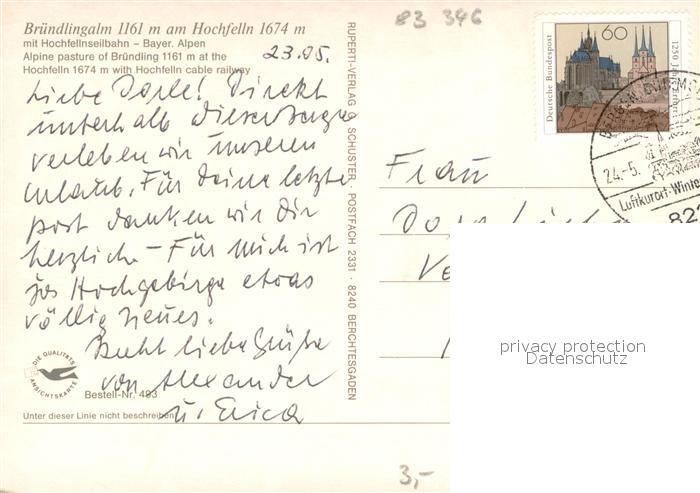 Bründlingalm 1161 m am Hochfelln 1674 m
mit Hochfellnseilbahn – Bayer. Alpen
Alpine pasture of Bründling 1161 m at the
Hochfelln 1674 m with Hochfelln cable railway
83 346
23.05.
Liebe Dorle! Direkt
unterhalb dieser Berge
verleben wir unseren
Urlaub. Für Deine letzte
Post danken wir Dir
herzlich. – Für mich ist
das Hochgebirge etwas
völlig Neues.
Recht liebe Grüße
von Alexander
u. Erica
DIE QUALITÄTS
ANSICHTSKARTE
Bestell-Nr. 493
Unter dieser Linie nicht beschreiben
RUPERTI-VERLAG SCHUSTER · POSTFACH 2331 · 8240 BERCHTESGADEN
Deutsche Bundespost
60
1250 Jahre Erfurt
24.-5.
Luftkurort-Winte
822
Frau
privacy protection
Datenschutz
3,-